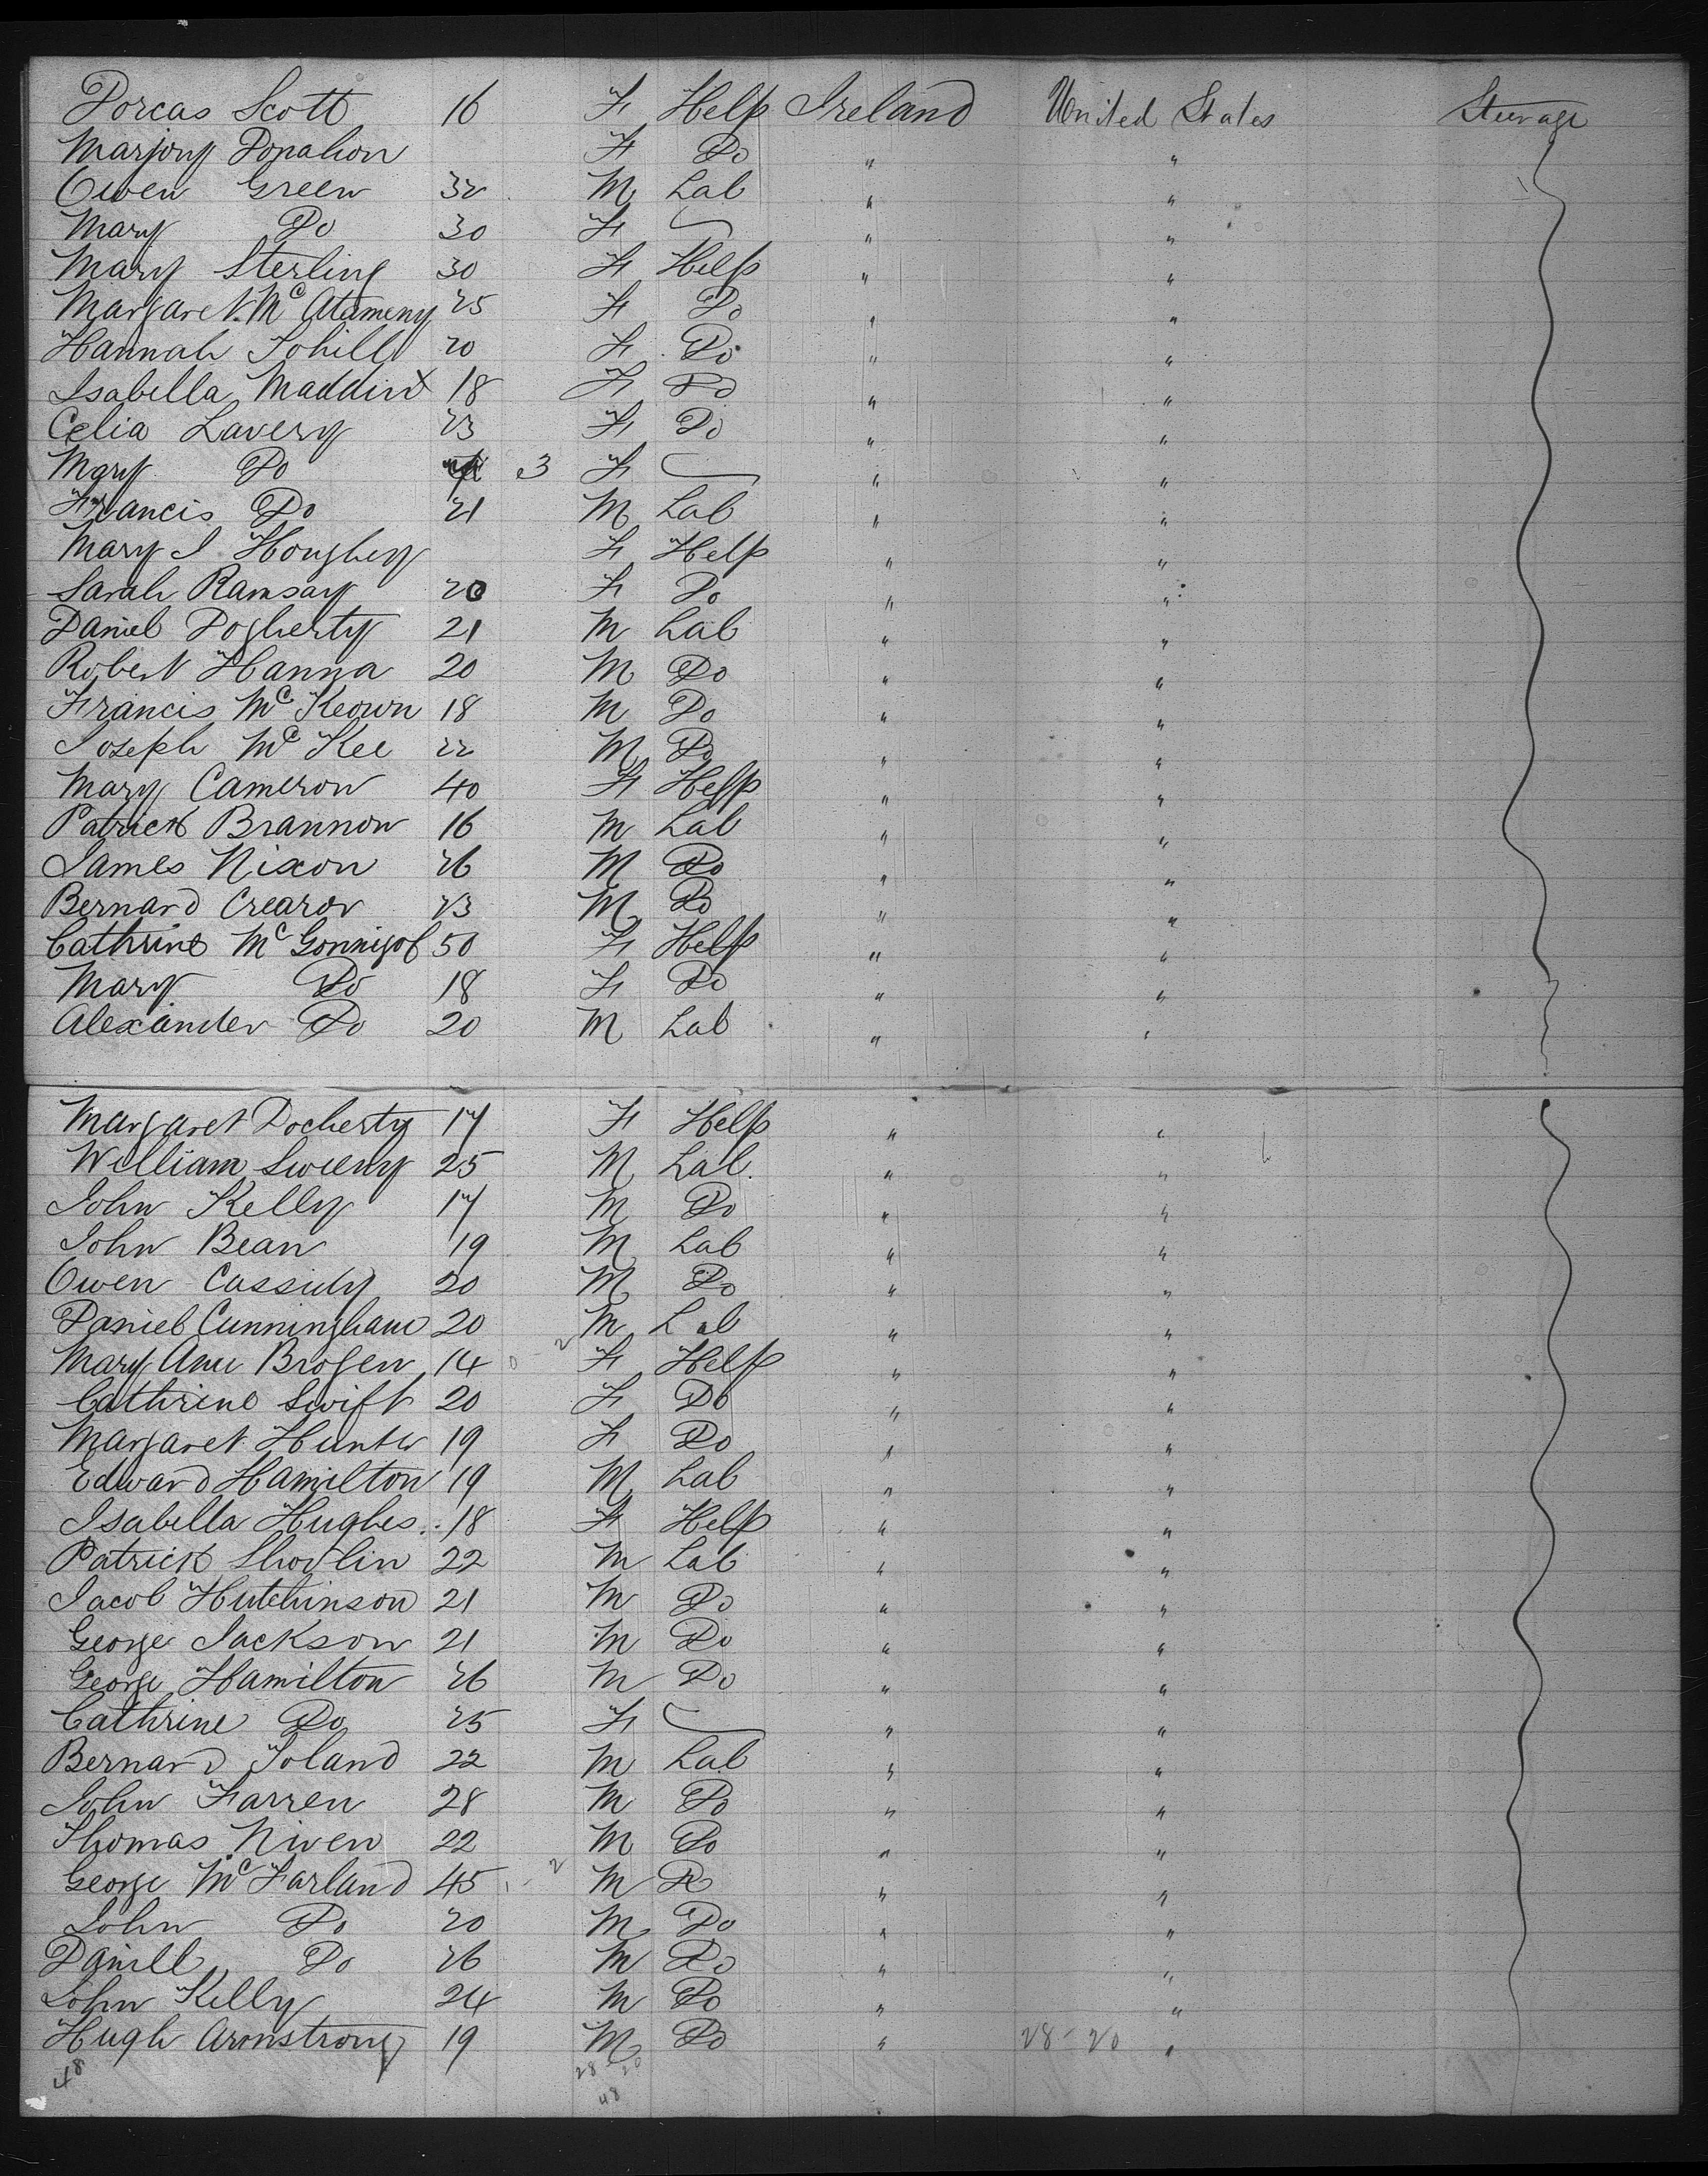 Dorcas Scott 16 F Help Ireland United States Steerage
Marjory Donahon F Do " "
Owen Green 32 M Lab " "
Mary Do 30 F " "
Mary Sterling 30 F Help " "
Margaret Mc Atameny 25 F Do " "
Hannah Tohill 20 F Do " "
Isabella Maddin 18 F Do " "
Celia Lavery 23 F Do " "
Mary Do 3 F " "
Francis Do 21 M Lab " "
Mary J Houghey F Help " "
Sarah Ramsay 20 F Do " "
Daniel Dogherty 21 M Lab " "
Robert Hanna 20 M Do " "
Francis Mc Keown 18 M Do " "
Joseph Mc Kee 22 M Do " "
Mary Cameron 40 F Help " "
Patrick Brannon 16 M Lab " "
James Nixon 26 M Do " "
Bernard Crearor 23 M Do " "
Cathrine Mc Gonnigol 50 F Help " "
Mary Do 18 F Do " "
Alexander Do 20 M Lab " "
Margaret Docherty 17 F Help " "
William Sweeny 25 M Lab " "
John Kelly 17 M Do " "
John Bean 19 M Lab " "
Owen Cassidy 20 M Do " "
Daniel Cunningham 20 M Lab " "
Mary Ann Brogen 14 F Help " "
Cathrine Swift 20 F Do " "
Margaret Hunter 19 F Do " "
Edward Hamilton 19 M Lab " "
Isabella Hughes 18 F Help " "
Patrick Shovlin 22 M Lab " "
Jacob Hutchinson 21 M Do " "
George Jackson 21 M Do " "
George Hamilton 26 M Do " "
Cathrine Do 25 F " "
Bernard Toland 22 M Lab " "
John Farren 28 M Do " "
Thomas Niven 22 M Do " "
George Mc Farland 45 M Do " "
John Do 20 M Do " "
Daniel Do 26 M Do " "
John Kelly 24 M Do " "
Hugh Armstrong 19 M Do " 28-20 "
48 28 20
48